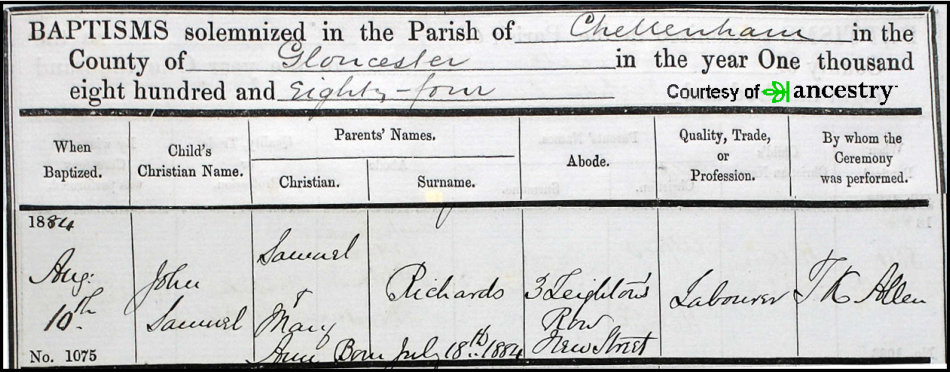 BAPTISMS solemnized in the Parish of Cheltenham in the
County of Gloucester in the year One thousand
eight hundred and Eighty-four
Courtesy of ancestry
When Baptized.
Child's Christian Name.
Parents' Names.
Christian.
Surname.
Abode.
Quality, Trade, or Profession.
By whom the Ceremony was performed.
1884
Aug: 10th
No. 1075
John
Samuel
Samuel
&
Mary
Ann Born July 18th 1884
Richards
3 Leighton's
Row
New Street
Labourer
T K Allen